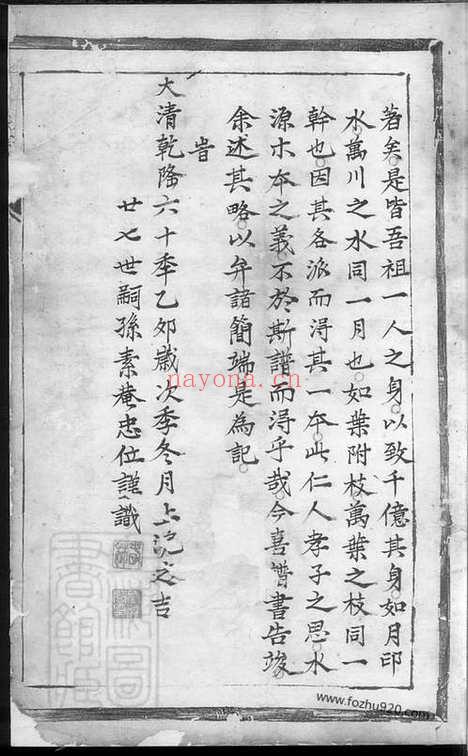 著矣是皆吾祖一人之身以致千億其身如月印
水萬川之水同一月也如葉附枝萬葉之枝同一
幹也因其各派而淂其一夲此仁人孝子之思水
源木夲之義不於斯譜而淂乎哉今喜譜書告竣
余述其略以弁諸簡端是為記
旹
大清乾隆六十年乙卯歲次季冬月上浣之吉
廿七世嗣孫素菴忠位謹識
nayona.cn
www.fozhu920.com